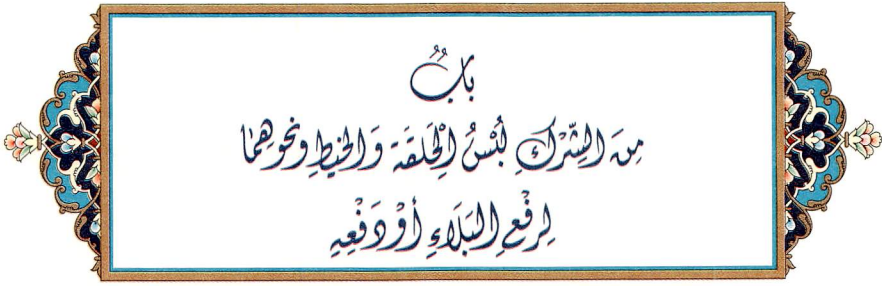 بَابٌ
مِنَ الشِّرْكِ لُبْسُ الْحَلَقَةِ وَالْخَيْطِ وَنَحْوِهِمَا
لِرَفْعِ الْبَلَاءِ أَوْ دَفْعِهِ